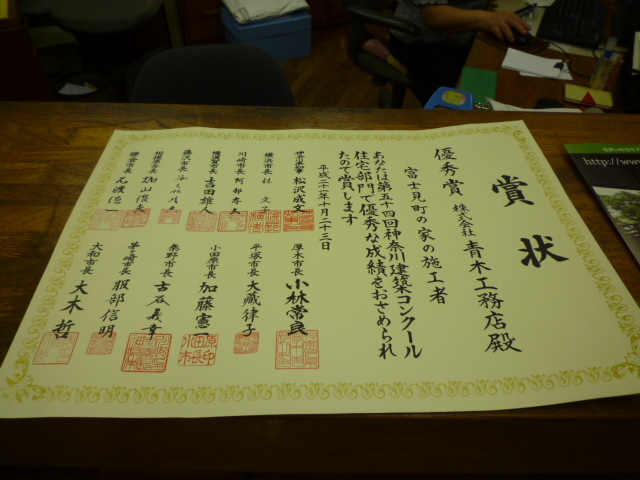 賞状
優秀賞
富士見町の家の施工者
株式会社 青木工務店殿
あなたは第五十四回神奈川建築コンクール
住宅部門で優秀な成績をおさめられ
たので賞します
平成二十一年十月二十三日
神奈川県知事 松沢成文
横浜市長 林 文子
川崎市長 阿部孝夫
横須賀市長 吉田雄人
藤沢市長
相模原市長 加山俊夫
鎌倉市長
厚木市長 小林常良
平塚市長 大藏律子
小田原市長 加藤憲一
秦野市長 古谷義幸
茅ヶ崎市長 服部信明
大和市長 大木哲
http://www